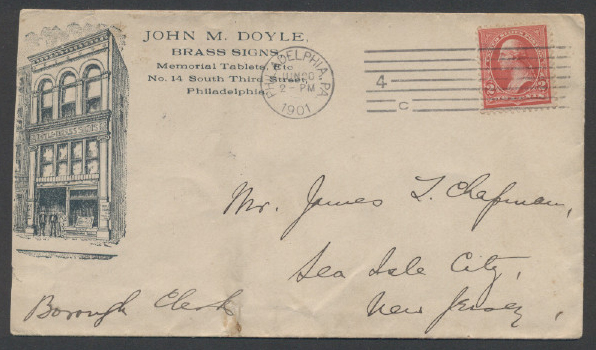 JOHN M. DOYLE,
BRASS SIGNS,
Memorial Tablets, Etc.
No. 14 South Third Street,
Philadelphia.
PHILADELPHIA, PA.
JUN 20
2 - PM
1901
4
C
Mr. James T. Chapman,
Sea Isle City,
New Jersey,
Borough Clerk